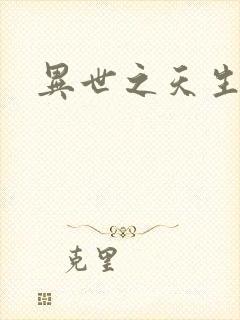 異世之天生
克里